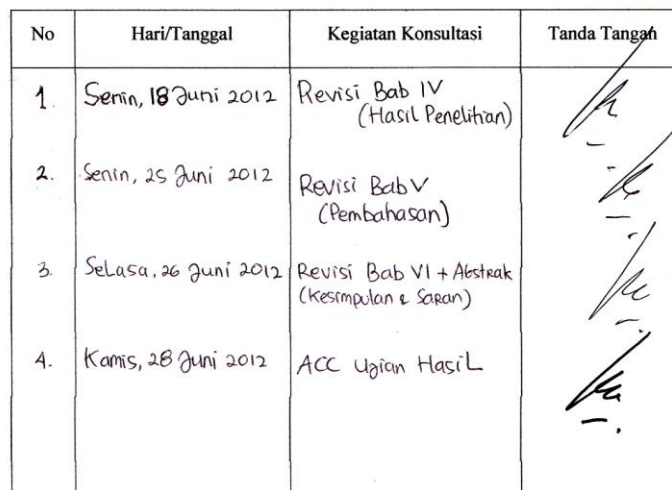 No Hari/Tanggal Kegiatan Konsultasi Tanda Tangan
1. Senin, 18 Juni 2012 Revisi Bab IV
(Hasil Penelitian)
2. Senin, 25 Juni 2012 Revisi Bab V
(Pembahasan)
3. Selasa, 26 Juni 2012 Revisi Bab VI + Abstrak
(Kesimpulan & Saran)
4. Kamis, 28 Juni 2012 ACC Ujian Hasil